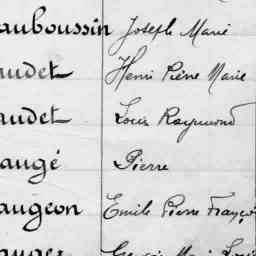 auboussin Joseph Marie
audet Henri Pierre Marie
audet Louis Raymond
augé Pierre
augeon Emile Pierre Françoi
auger Georges Marie Louis